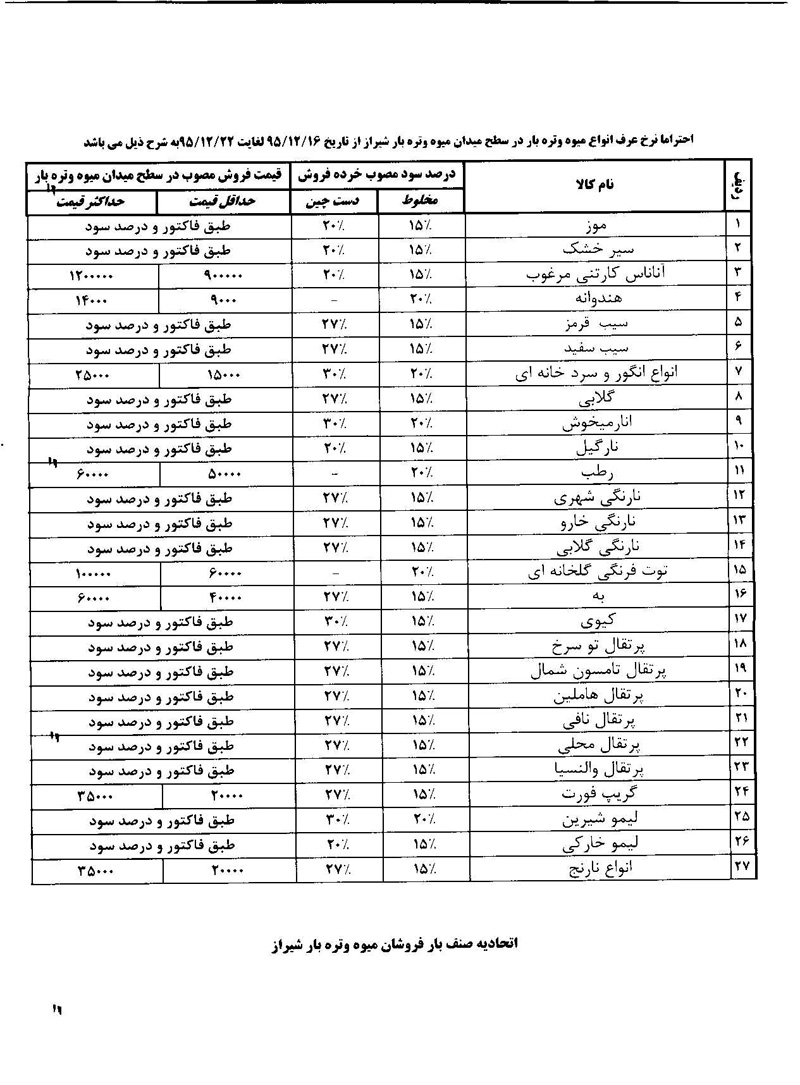 احتراما نرخ عرف انواع میوه وتره بار در سطح میدان میوه وتره بار شیراز از تاریخ ۹۵/۱۲/۱۶ لغایت ۹۵/۱۲/۲۲به شرح ذیل می باشد
ردیف نام کالا درصد سود مصوب خرده فروش قیمت فروش مصوب در سطح میدان میوه وتره بار
مخلوط دست چین حداقل قیمت حداکثر قیمت
۱ موز ۱۵٪ ۲۰٪ طبق فاکتور و درصد سود
۲ سیر خشک ۱۵٪ ۲۰٪ طبق فاکتور و درصد سود
۳ آناناس کارتنی مرغوب ۱۵٪ ۲۰٪ ۹۰۰۰۰۰ ۱۲۰۰۰۰۰
۴ هندوانه ۲۰٪ – ۹۰۰۰ ۱۴۰۰۰
۵ سیب قرمز ۱۵٪ ۲۷٪ طبق فاکتور و درصد سود
۶ سیب سفید ۱۵٪ ۲۷٪ طبق فاکتور و درصد سود
۷ انواع انگور و سرد خانه ای ۲۰٪ ۳۰٪ ۱۵۰۰۰ ۲۵۰۰۰
۸ گلابی ۱۵٪ ۲۷٪ طبق فاکتور و درصد سود
۹ انارمیخوش ۲۰٪ ۳۰٪ طبق فاکتور و درصد سود
۱۰ نارگیل ۱۵٪ ۲۰٪ طبق فاکتور و درصد سود
۱۱ رطب ۲۰٪ – ۵۰۰۰۰ ۶۰۰۰۰
۱۲ نارنگی شهری ۱۵٪ ۲۷٪ طبق فاکتور و درصد سود
۱۳ نارنگی خارو ۱۵٪ ۲۷٪ طبق فاکتور و درصد سود
۱۴ نارنگی گلابی ۱۵٪ ۲۷٪ طبق فاکتور و درصد سود
۱۵ توت فرنگی گلخانه ای ۲۰٪ – ۶۰۰۰۰ ۱۰۰۰۰۰
۱۶ به ۱۵٪ ۲۷٪ ۴۰۰۰۰ ۶۰۰۰۰
۱۷ کیوی ۱۵٪ ۳۰٪ طبق فاکتور و درصد سود
۱۸ پرتقال تو سرخ ۱۵٪ ۲۷٪ طبق فاکتور و درصد سود
۱۹ پرتقال تامسون شمال ۱۵٪ ۲۷٪ طبق فاکتور و درصد سود
۲۰ پرتقال هاملین ۱۵٪ ۲۷٪ طبق فاکتور و درصد سود
۲۱ پرتقال نافی ۱۵٪ ۲۷٪ طبق فاکتور و درصد سود
۲۲ پرتقال محلی ۱۵٪ ۲۷٪ طبق فاکتور و درصد سود
۲۳ پرتقال والنسیا ۱۵٪ ۲۷٪ طبق فاکتور و درصد سود
۲۴ گریپ فورت ۱۵٪ ۲۷٪ ۲۰۰۰۰ ۳۵۰۰۰
۲۵ لیمو شیرین ۲۰٪ ۳۰٪ طبق فاکتور و درصد سود
۲۶ لیمو خارکی ۱۵٪ ۲۰٪ طبق فاکتور و درصد سود
۲۷ انواع نارنج ۱۵٪ ۲۷٪ ۲۰۰۰۰ ۳۵۰۰۰
اتحادیه صنف بار فروشان میوه وتره بار شیراز